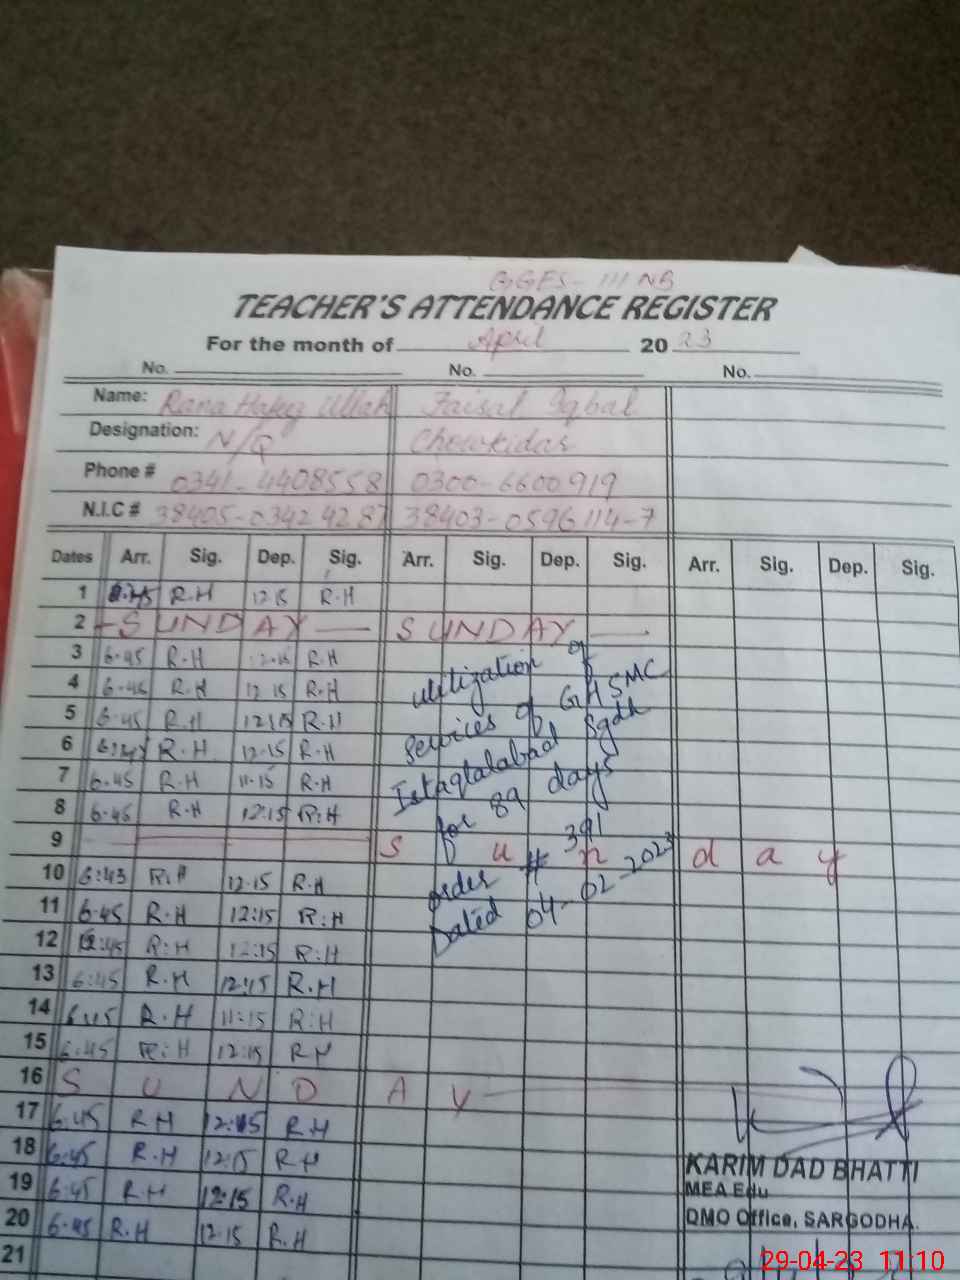 GGES- 111 NB
TEACHER'S ATTENDANCE REGISTER
For the month of April 2023
No. No. No.
Name: Rana Hafeez Ullah Faisal Iqbal
Designation: N/Q Chowkidar
Phone # 0341-4408558 0300-6600919
N.I.C # 38405-0342428 38403-0596114-7
Dates Arr. Sig. Dep. Sig. Arr. Sig. Dep. Sig. Arr. Sig. Dep. Sig.
1 R.H 12 15 R.H
2 SUNDAY SUNDAY
3 6-45 R.H R.H utilization of
4 6-45 R.H 12 15 R.H services of GHSMC
5 6-45 R.H 12 15 R.H Istaqlalabad Sgdh
6 R.H 12-15 R.H for 89 days
7 6-45 R.H 11-15 R.H order # 391
8 6-45 R.H 12:15 R:H Dated 04-02-2023
9 Sunday
10 6:43 R.H 12.15 R.H
11 6.45 R.H 12:15 R:H
12 R:H 12:15 R:H
13 6:45 R.H 12:15 R.H
14 R.H 11:15 R:H
15 6:45 R:H 12:15 RH
16 SUNDAY
17 6.45 R.H R.H
18 6:45 R.H 12:15 RH
19 6:45 R.H 12:15 R.H
20 6-45 R.H 12.15 R.H
21
KARIM DAD BHATTI
MEA Edu
DMO Office, SARGODHA.
29-04-23 11:10